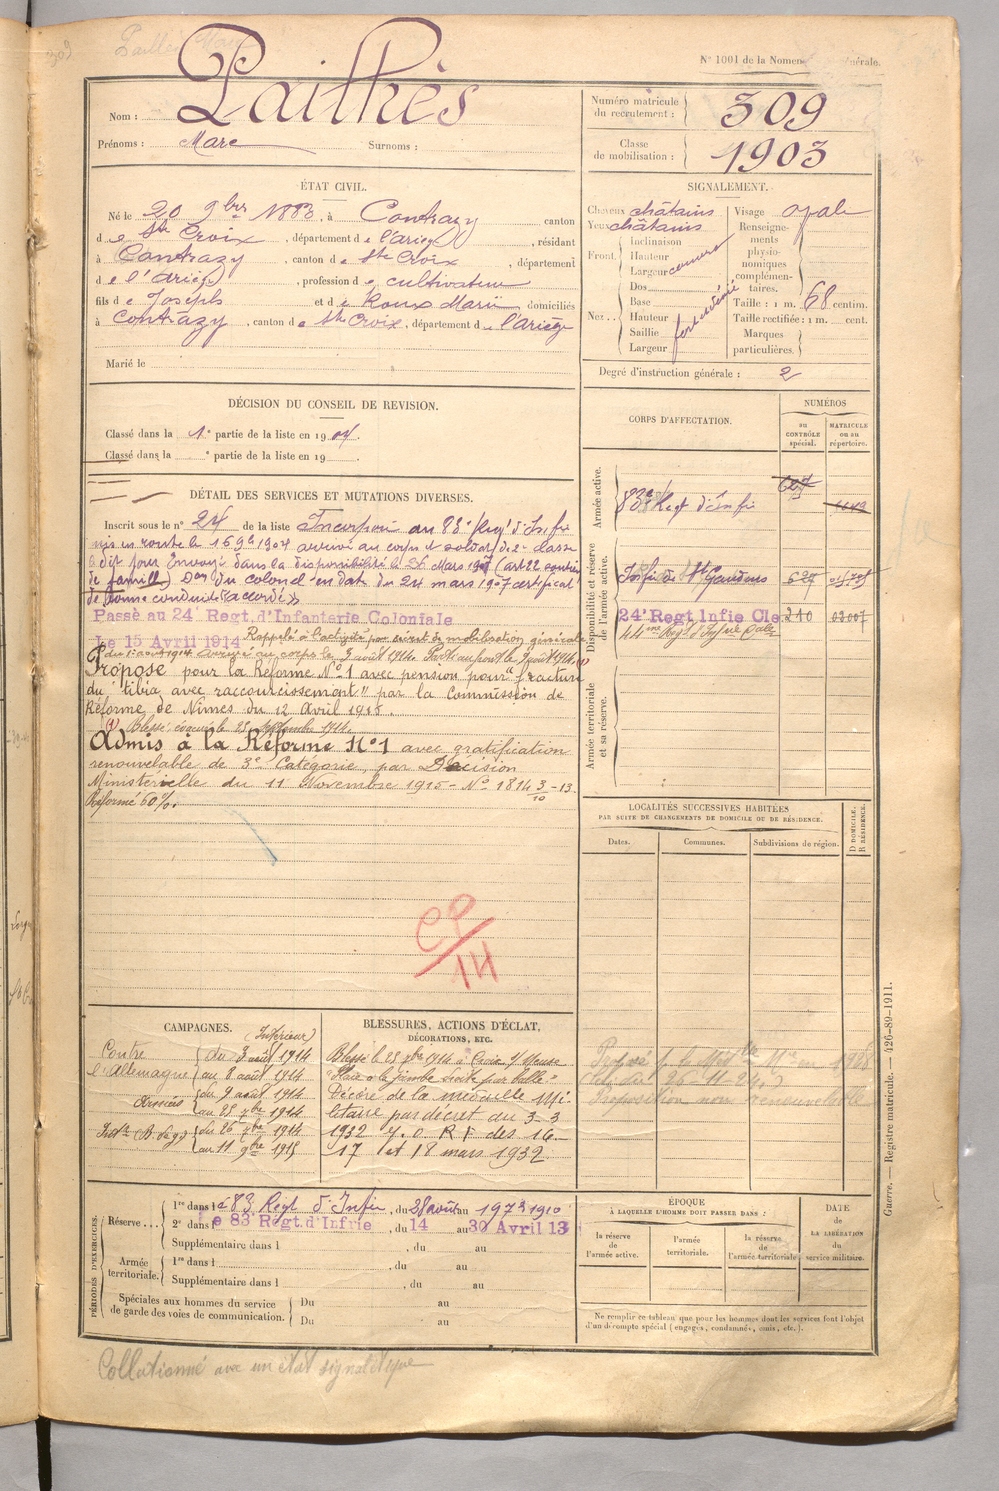 309
Nº 1001 de la Nomen érale.
Nom : Pailhès
Prénoms : Marc Surnoms :
Numéro matricule du recrutement : 309
Classe de mobilisation : 1903
ÉTAT CIVIL.
Né le 20 9bre 1883, à Contrazy canton
de Ste Croix, département de l'ariège, résidant
à Contrazy, canton de Ste Croix, département
de l'ariège, profession de cultivateur
fils de Joseph et de Roux Marie domiciliés
à Contrazy, canton de Ste Croix, département de l'ariège
Marié le
SIGNALEMENT.
Cheveux châtains Visage ovale
Yeux châtains
Front. Inclinaison
Hauteur
Largeur
Nez. Dos
Base
Hauteur
Saillie
Largeur
Renseignements physionomiques complémentaires.
Taille : 1 m. 68 centim.
Taille rectifiée : 1 m. cent.
Marques particulières.
Degré d'instruction générale : 2
DÉCISION DU CONSEIL DE REVISION.
Classé dans la 1e partie de la liste en 1904.
Classé dans la e partie de la liste en 19
CORPS D'AFFECTATION.
NUMÉROS
au CONTRÔLE spécial.
MATRICULE ou au répertoire.
Armée active.
83e Regt d'Infie
Disponibilité et réserve de l'armée active.
Infie de St Gaudens
24e Regt Infie Cle 210 03007
44me Regt d'Infie Cole
Armée territoriale et sa réserve.
DÉTAIL DES SERVICES ET MUTATIONS DIVERSES.
Inscrit sous le nº 24 de la liste Incorporé au 83e Regt d'Infie
mis en route le 16 9bre 1904 arrivé au corps et soldat de 2e classe
dit jour Envoyé dans la disponibilité le 26 Mars 1907 (art 22 soutien
de famille) Don du colonel en date du 24 mars 1907 certificat
de bonne conduite "accordé"
Passé au 24e Regt d'Infanterie Coloniale
Le 15 Avril 1914 Rappelé à l'activité par décret de mobilisation générale
du 1er août 1914 arrivé au corps le 3 août 1914. Parti au front le 9 août 1914. (1)
Proposé pour la Réforme Nº 1 avec pension pour "fracture
du tibia avec raccourcissement" par la Commission de
Réforme de Nimes du 12 Avril 1915.
(1) Blessé, évacué le 25 septembre 1914.
Admis à la Réforme Nº 1 avec gratification
renouvelable de 3e Catégorie par Décision
Ministerielle du 11 Novembre 1915 - Nº 1814 3/10 - 13.
Réformé 60%.
LOCALITÉS SUCCESSIVES HABITÉES
PAR SUITE DE CHANGEMENTS DE DOMICILE OU DE RÉSIDENCE.
Dates. Communes. Subdivisions de région. D DOMICILE. R RÉSIDENCE.
CP/14
CAMPAGNES.
(Intérieur)
Contre l'Allemagne
du 3 août 1914
au 8 août 1914
Armées
du 9 août 1914
au 25 7bre 1914
du 26 7bre 1914
au 11 9bre 1915
BLESSURES, ACTIONS D'ÉCLAT,
DÉCORATIONS, ETC.
Blessé le 25 7bre 1914 à Croix s/ Meuse
"Plaie à la jambe droite par balle"
Décoré de la médaille Mi-
litaire par décret du 3-3
1932 J.O R F des 16-
17 et 18 mars 1932
PÉRIODES D'EXERCICES.
Réserve... 1re dans le 83e Regt d'Infie, du 28 avril au 1910
2e dans le 83e Regt d'Infrie, du 14 au 30 Avril 13
Supplémentaire dans l , du au
Armée territoriale. 1re dans l , du au
Supplémentaire dans l , du au
Spéciales aux hommes du service de garde des voies de communication. Du au
Du au
ÉPOQUE
À LAQUELLE L'HOMME DOIT PASSER DANS :
la réserve de l'armée active.
l'armée territoriale.
la réserve de l'armée territoriale.
DATE de LA LIBÉRATION du service militaire.
Ne remplir ce tableau que pour les hommes dont les services font l'objet
d'un décompte spécial (engagés, condamnés, omis, etc.).
Guerre. — Registre matricule. — 426-89-1911.
Collationné avec un état signalétique